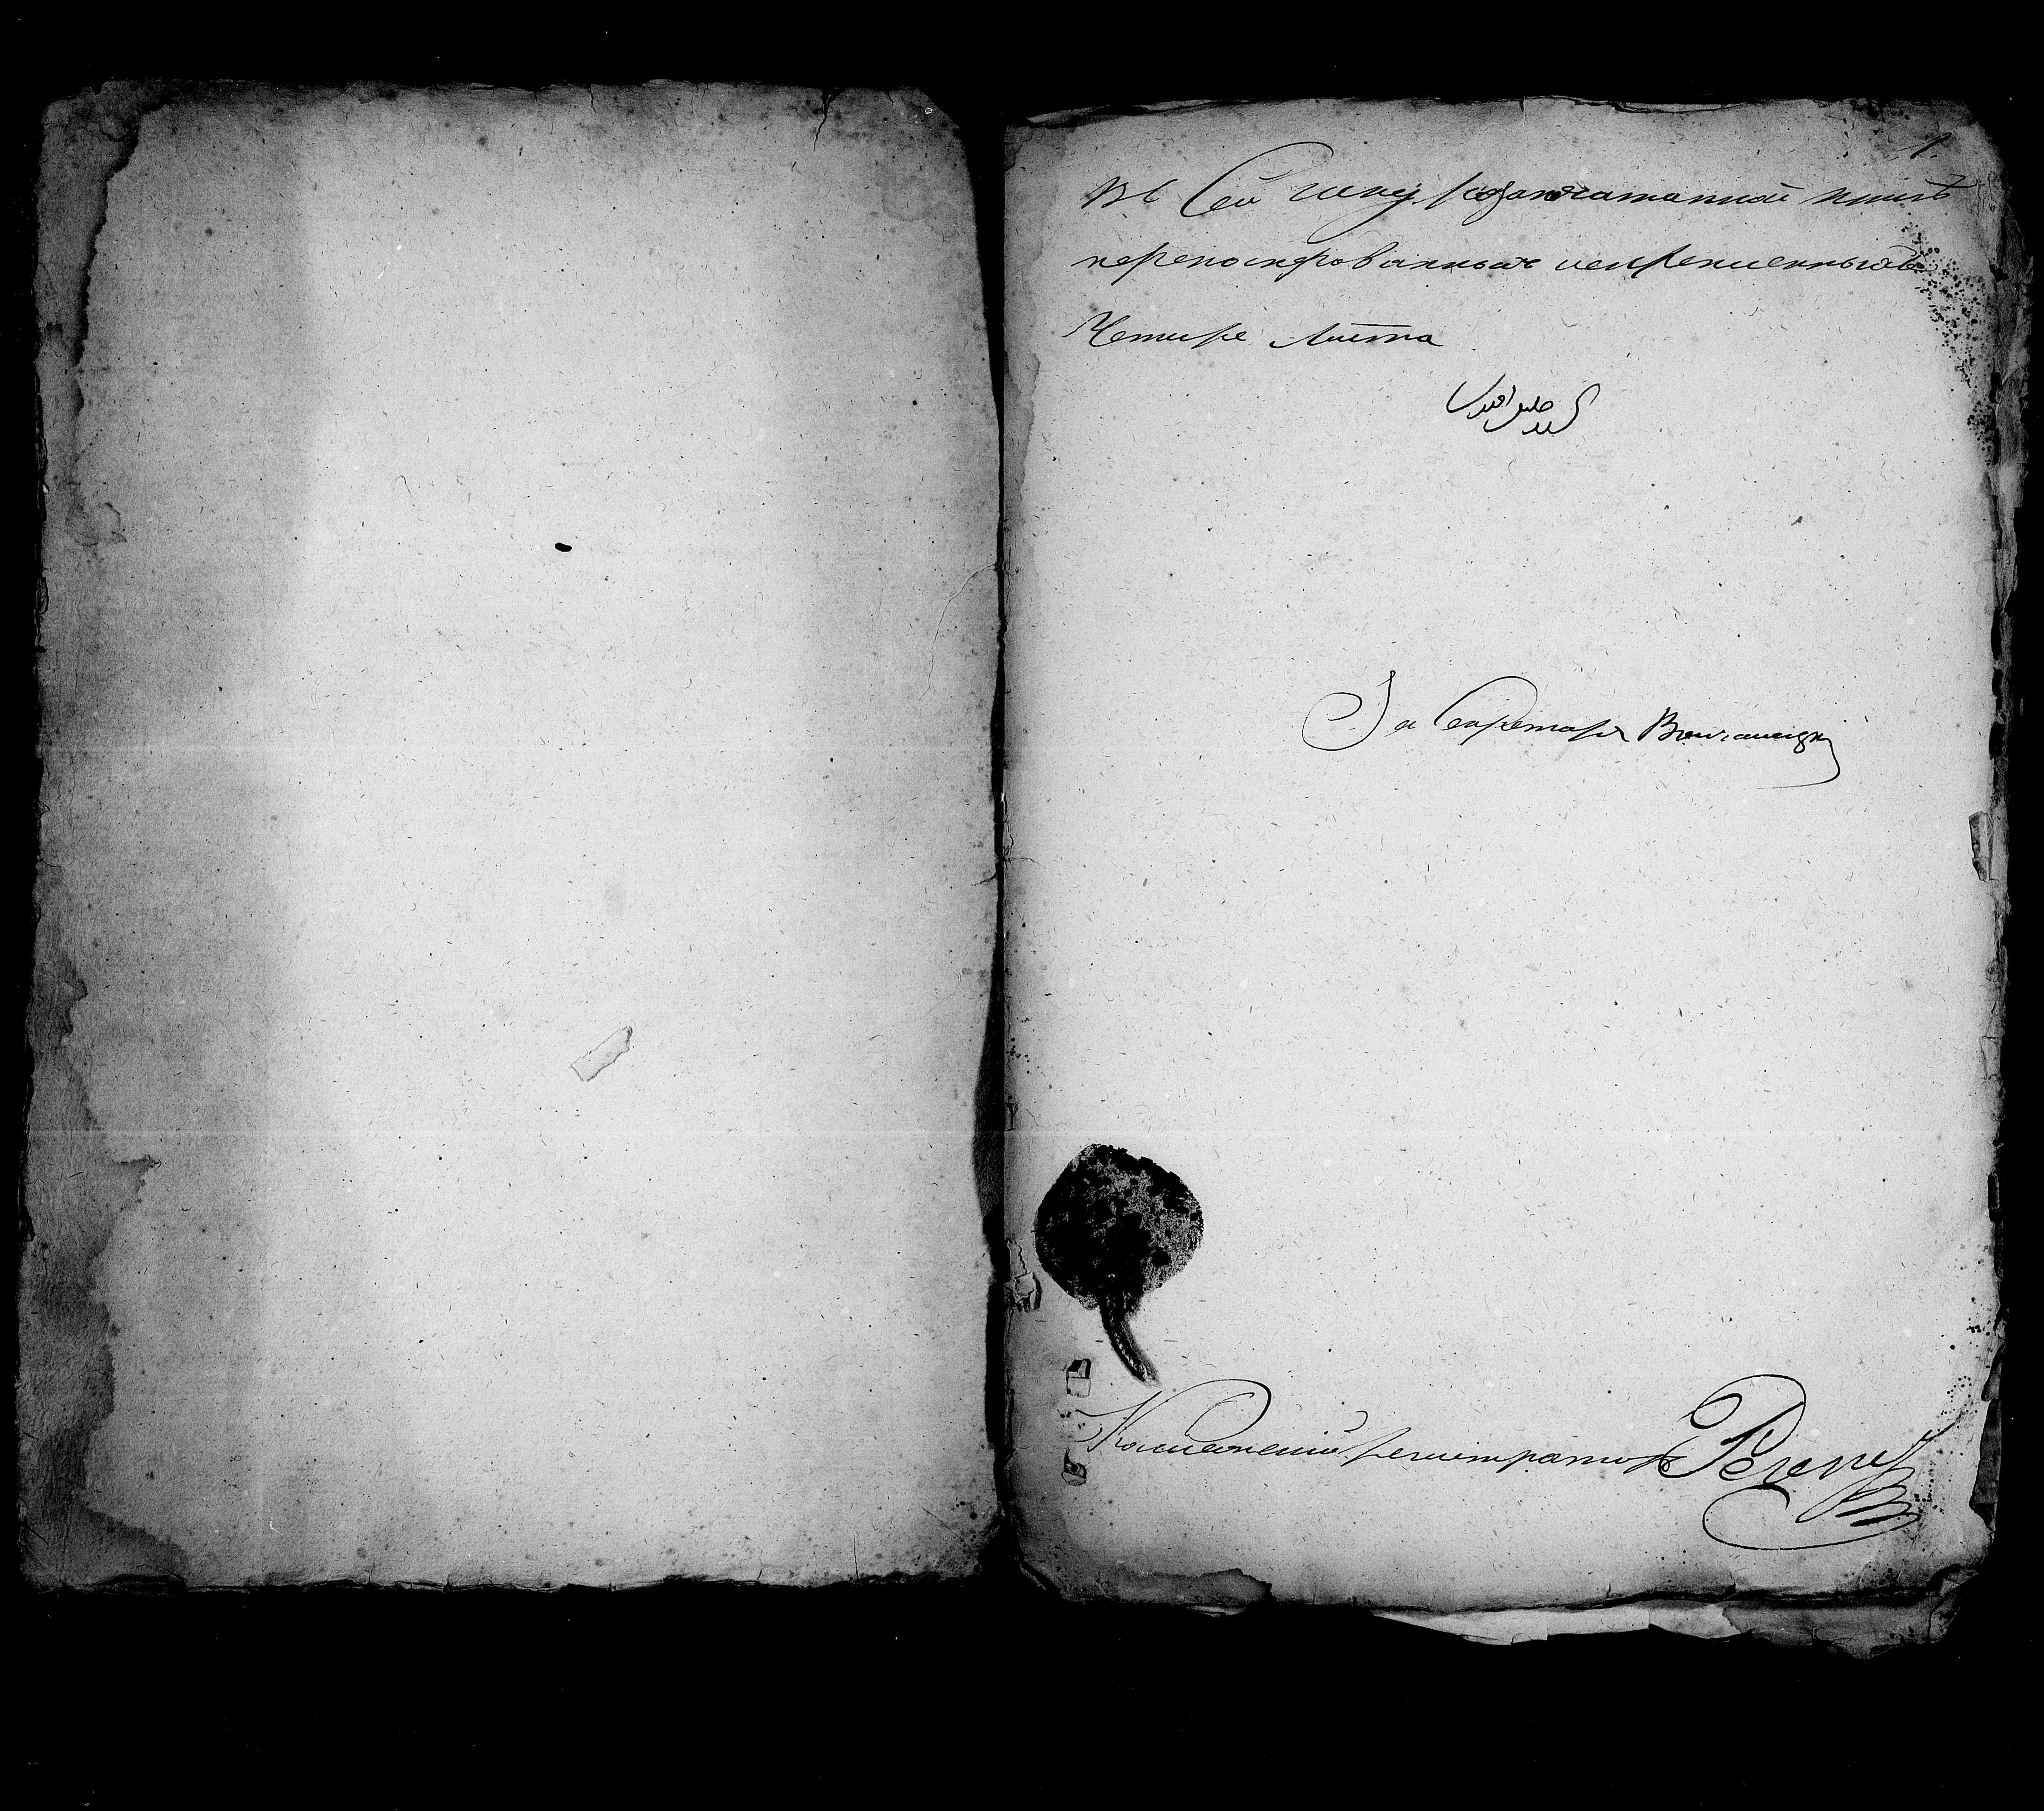 1.
Въ Сей шнурозапечатанной книгѣ
переномерованныхъ и скрепленныхъ
Четыре Листа
За Секретаря
Коллежский регистраторъ